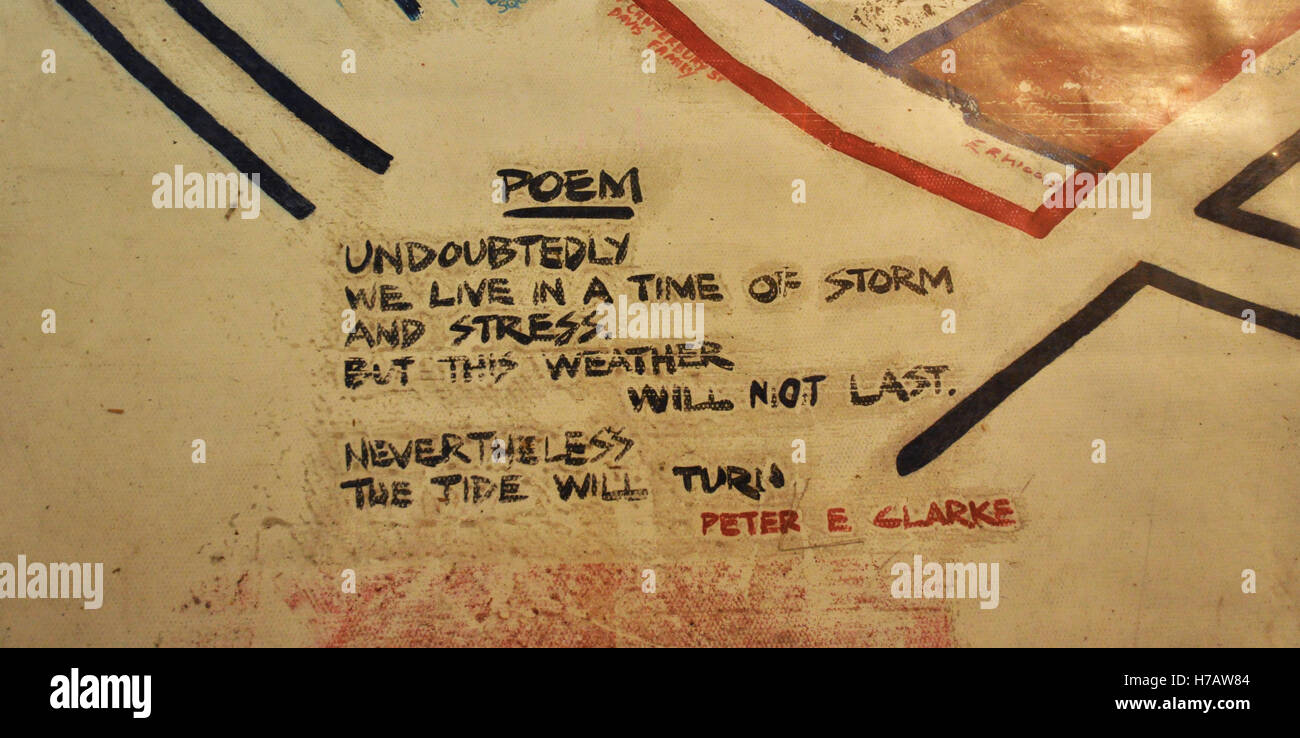 CANTERBURY ST
DAVIS
FAMILY
POEM
UNDOUBTEDLY
WE LIVE IN A TIME OF STORM
AND STRESS.
BUT THIS WEATHER
WILL NOT LAST.
NEVERTHELESS
THE TIDE WILL TURN
PETER E CLARKE
alamy
a
alamy
Image ID: H7AW84
www.alamy.com